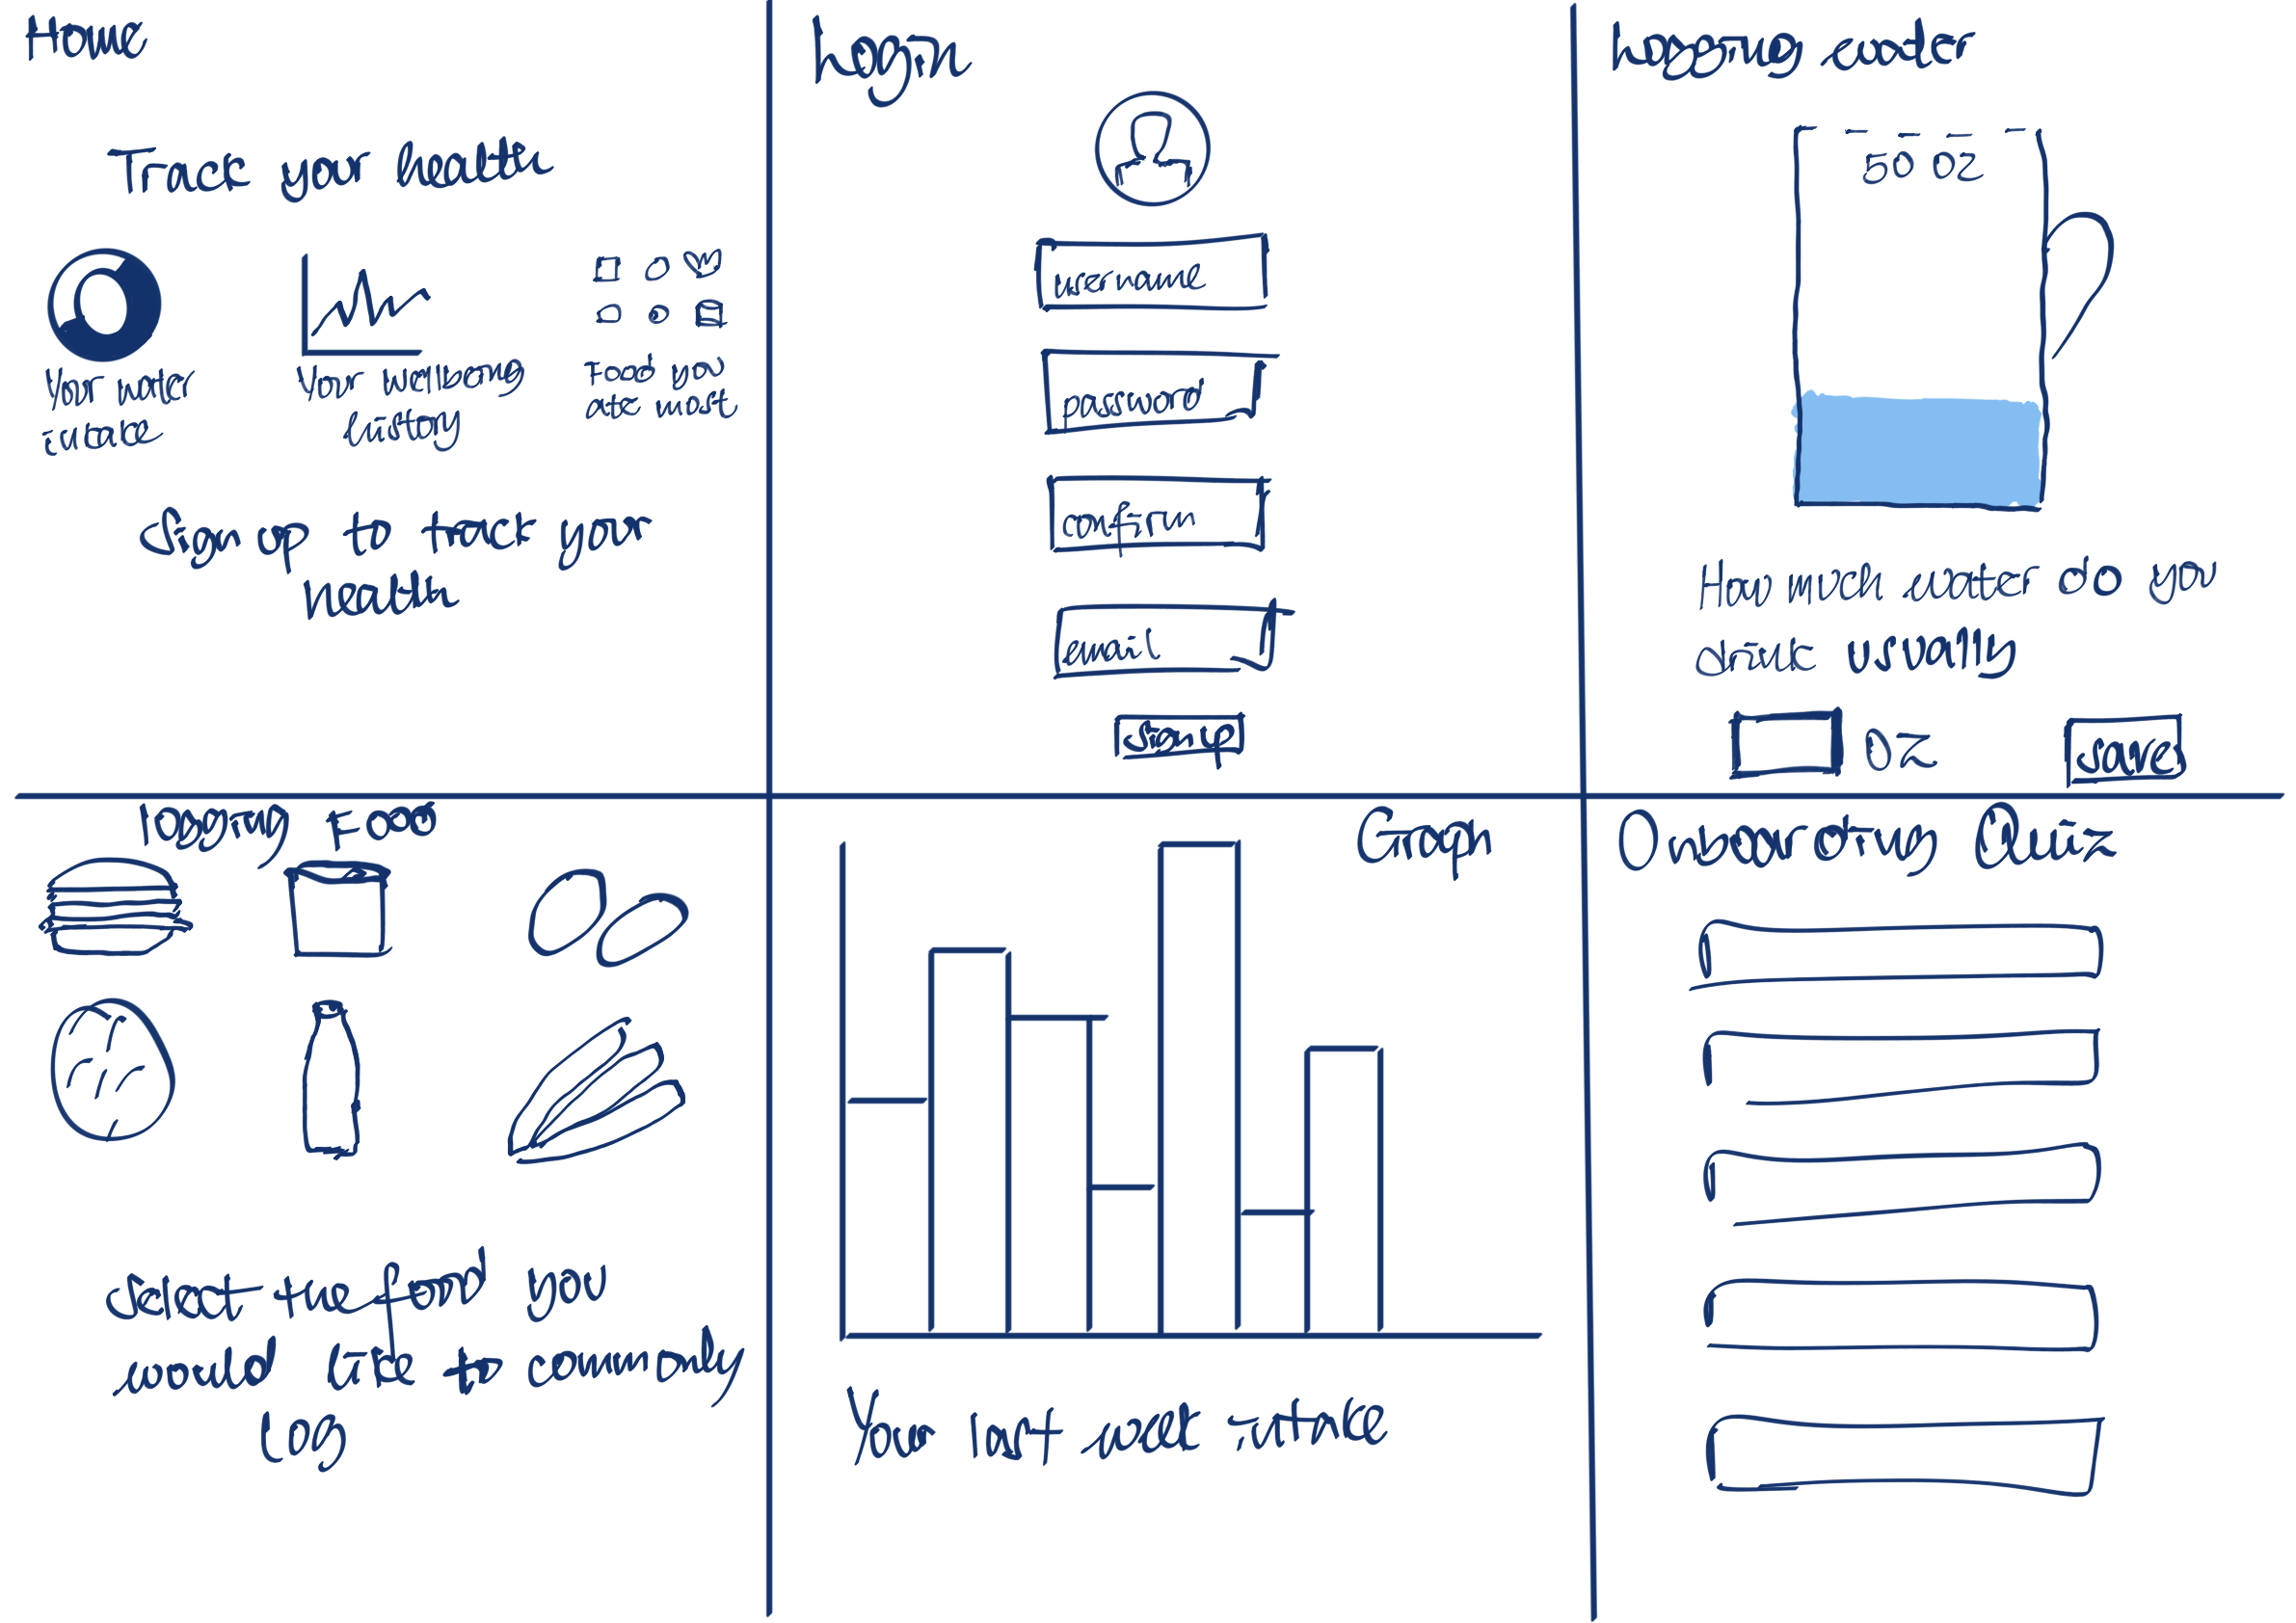 Home
Track your health
Your water
intake
Your wellbeing
history
Food you
ate most
Sign up to track your
health
Login
username
password
confirm
email
Sign up
Logging water
50 oz
How much water do you
drink usually
oz
save
logging Food
Select the food you
would like to commonly
log
Graph
Your last week intake
Onboarding Quiz